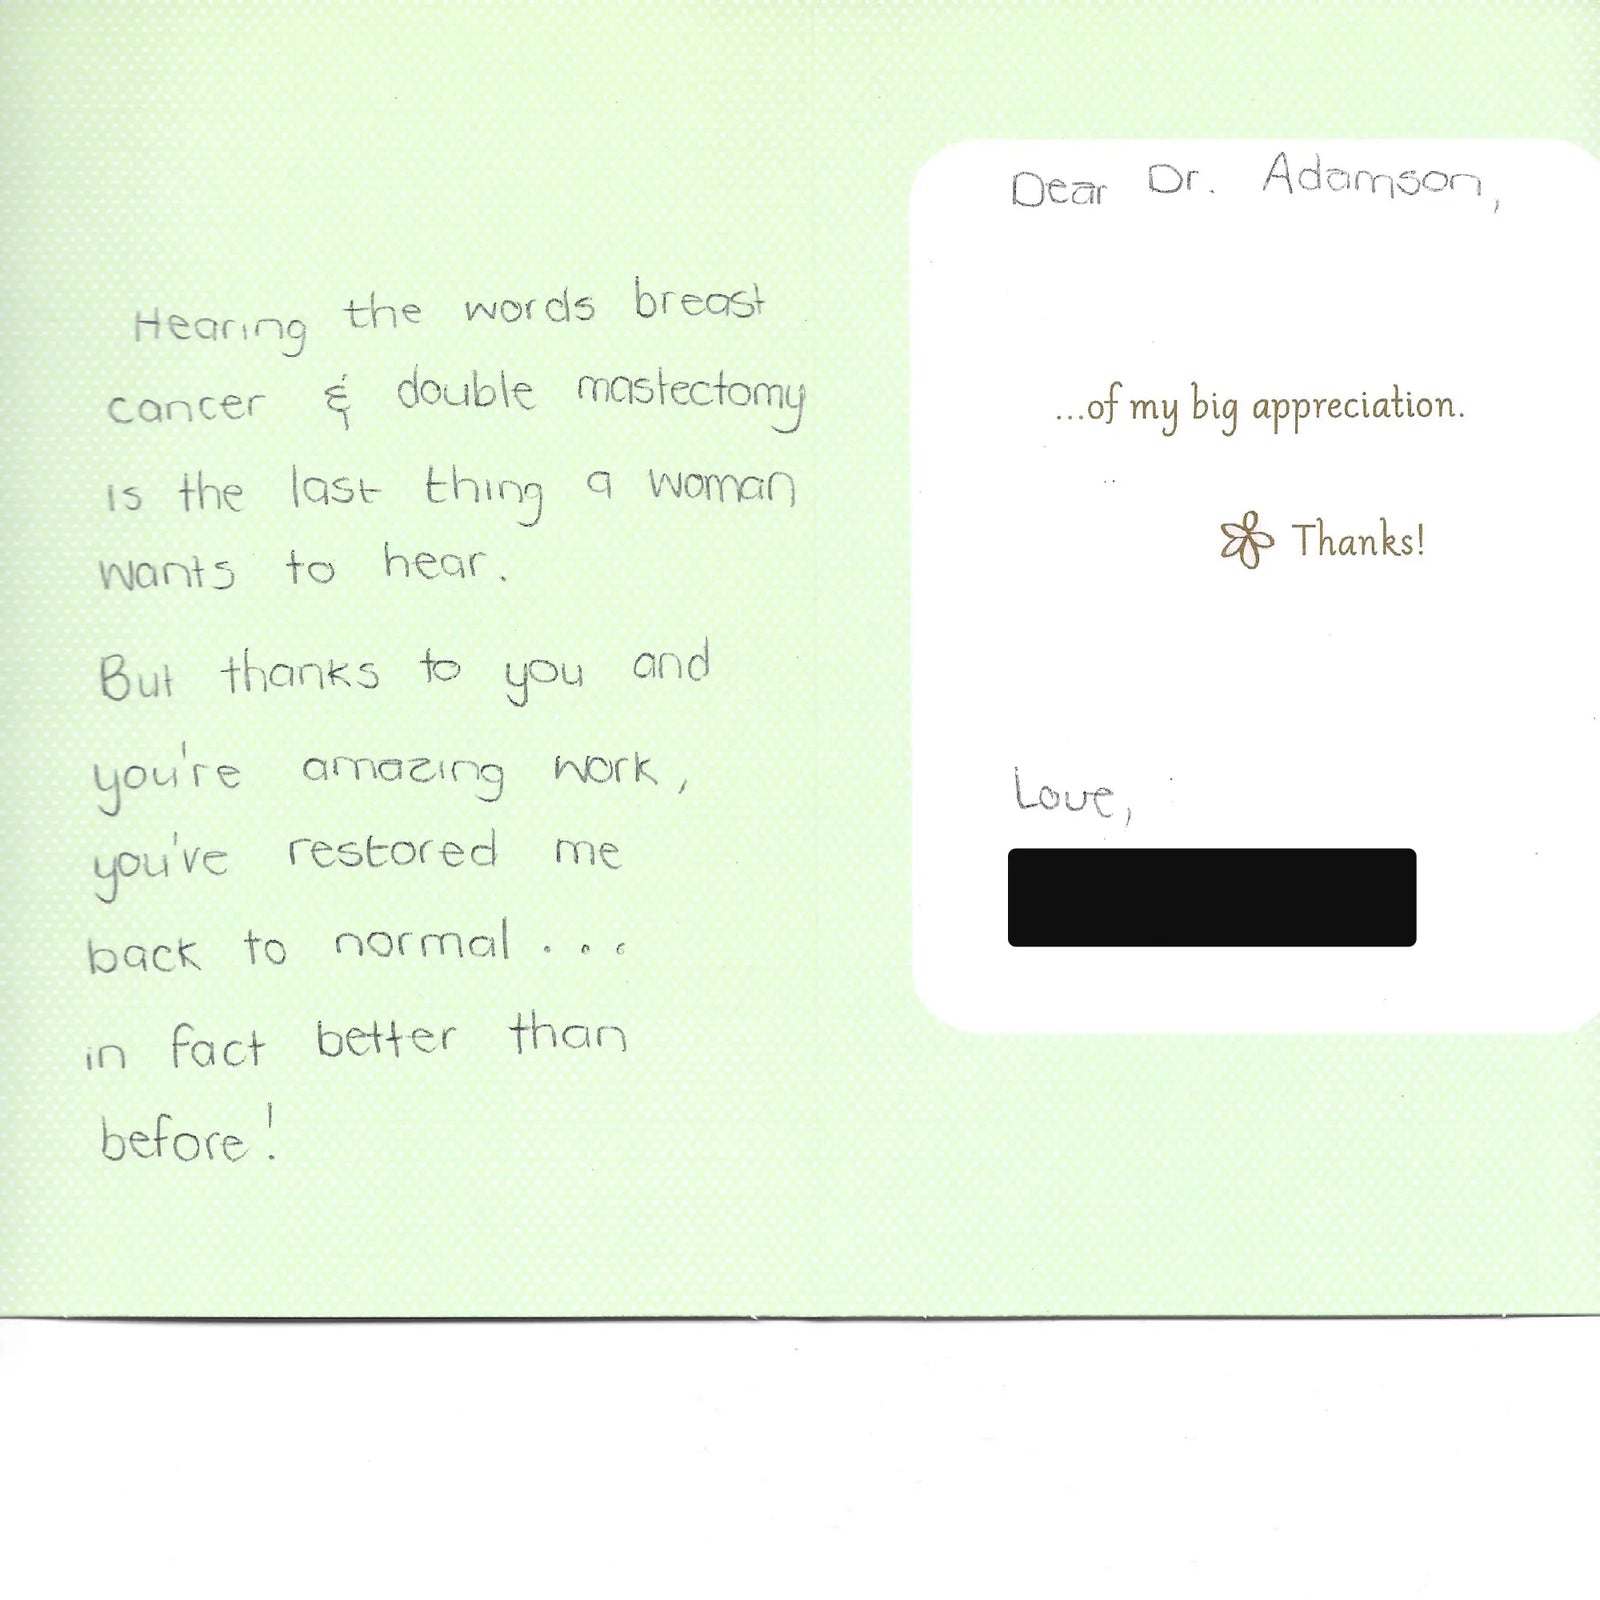 Hearing the words breast
cancer & double mastectomy
is the last thing a woman
wants to hear.
But thanks to you and
you're amazing work,
you've restored me
back to normal...
in fact better than
before!
Dear Dr. Adamson,
...of my big appreciation.
Thanks!
Love,